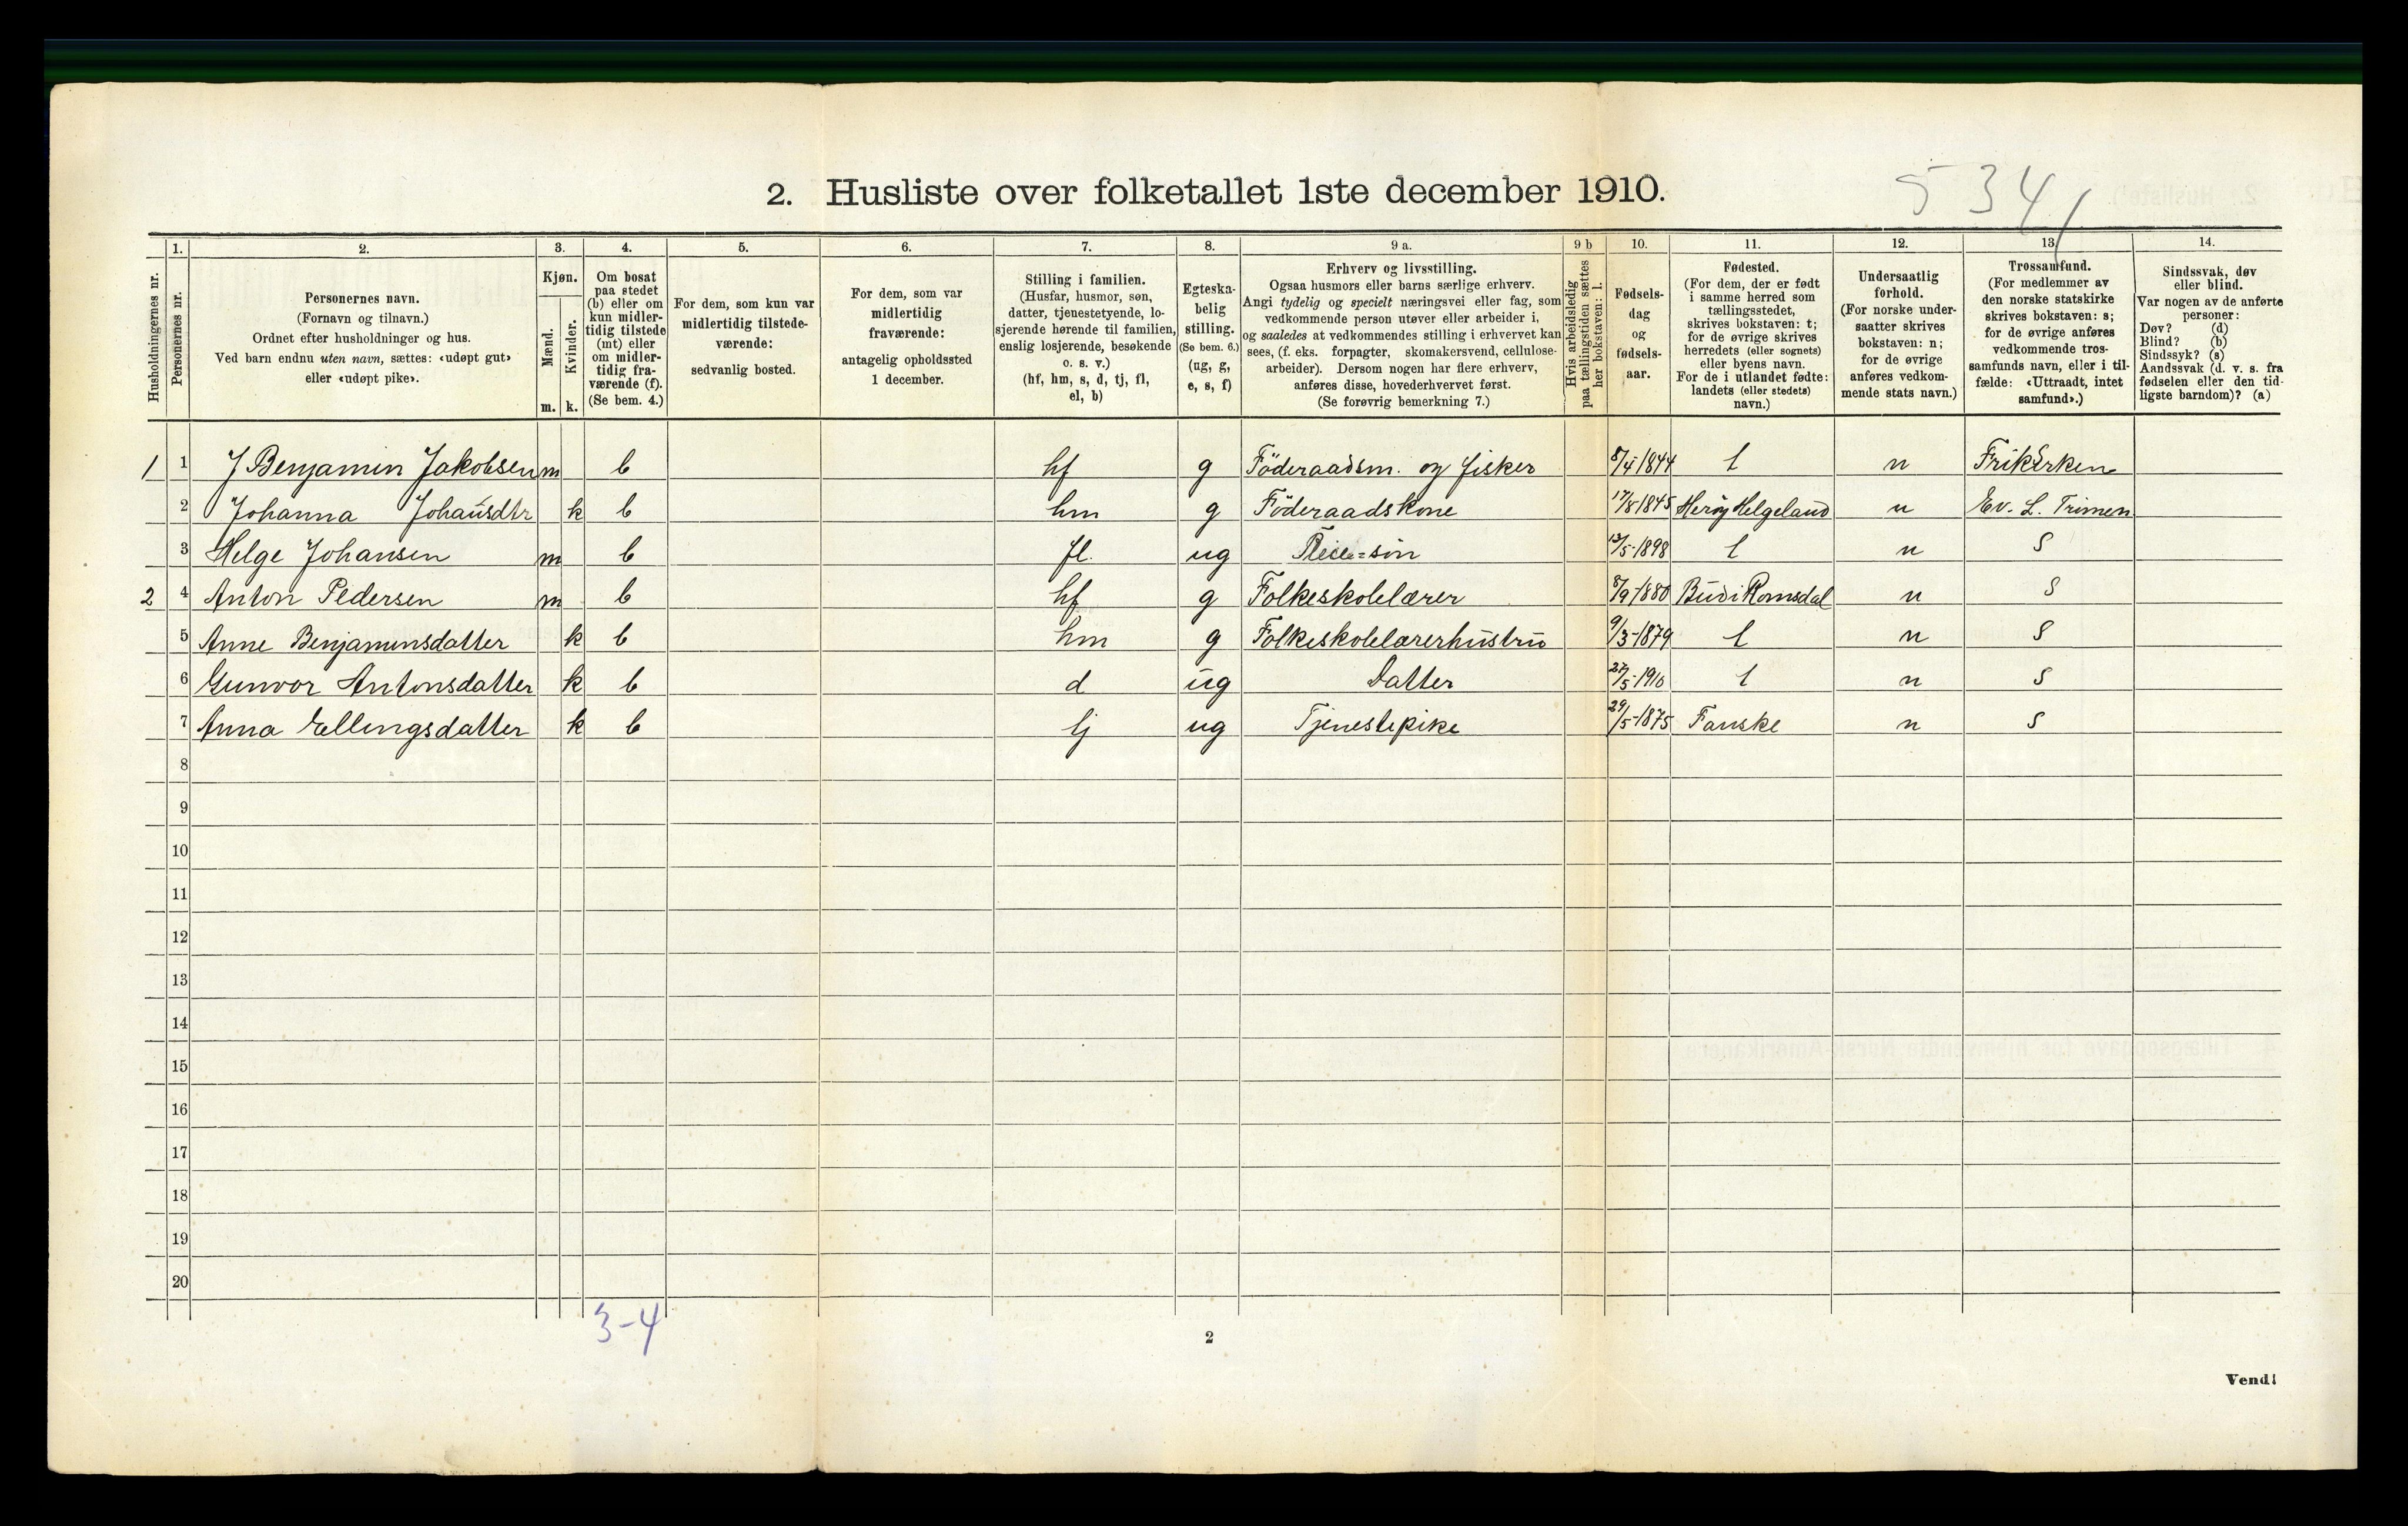 5 34/
2. Husliste over folketallet 1ste december 1910.
Husholdningernes nr.
1. Personernes nr.
2.
Personernes navn.
(Fornavn og tilnavn.)
Ordnet efter husholdninger og hus.
Ved barn endnu uten navn, sættes: «udøpt gut»
eller «udøpt pike».
3.
Kjøn.
Mænd. Kvinder.
m. k.
4.
Om bosat
paa stedet
(b) eller om
kun midler-
tidig tilstede
(mt) eller
om midler-
tidig fra-
værende (f).
(Se bem. 4.)
5.
For dem, som kun var
midlertidig tilstede-
værende:
sedvanlig bosted.
6.
For dem, som var
midlertidig
fraværende:
antagelig opholdssted
1 december.
7.
Stilling i familien.
(Husfar, husmor, søn,
datter, tjenestetyende, lo-
sjerende hørende til familien,
enslig losjerende, besøkende
o. s. v.)
(hf, hm, s, d, tj, fl,
el, b)
8.
Egteska-
belig
stilling.
(Se bem. 6.)
(ug, g,
e, s, f)
9 a.
Erhverv og livsstilling.
Ogsaa husmors eller barns særlige erhverv.
Angi tydelig og specielt næringsvei eller fag, som
vedkommende person utøver eller arbeider i,
og saaledes at vedkommendes stilling i erhvervet kan
sees, (f. eks. forpagter, skomakersvend, cellulose-
arbeider). Dersom nogen har flere erhverv,
anføres disse, hovederhvervet først.
(Se forøvrig bemerkning 7.)
9 b
Hvis arbeidsledig
paa tællingstiden sættes
her bokstaven: l.
10.
Fødsels-
dag
og
fødsels-
aar.
11.
Fødested.
(For dem, der er født
i samme herred som
tællingsstedet,
skrives bokstaven: t;
for de øvrige skrives
herredets (eller sognets)
eller byens navn.
For de i utlandet fødte:
landets (eller stedets)
navn.)
12.
Undersaatlig
forhold.
(For norske under-
saatter skrives
bokstaven: n;
for de øvrige
anføres vedkom-
mende stats navn.)
13.
Trossamfund.
(For medlemmer av
den norske statskirke
skrives bokstaven: s;
for de øvrige anføres
vedkommende tros-
samfunds navn, eller i til-
fælde: «Uttraadt, intet
samfund».)
14.
Sindssvak, døv
eller blind.
Var nogen av de anførte
personer:
Døv? (d)
Blind? (b)
Sindssyk? (s)
Aandssvak (d. v. s. fra
fødselen eller den tid-
ligste barndom)? (a)
1 1 J Benjamin Jakobsen m b hf g Föderaadsm. og fisker 8/4 1844 t n Frikirken
2 Johanna Johansdtr k b hm g Föderaadskone 17/8 1845 Heröy Helgeland n Ev. L.
3 Helge Johansen m b fl. ug 13/5-1898 t n S
2 4 Anton Pedersen m b hf g Folkeskolelærer 8/9-1880 Bud i Romsdal n S
5 Anne Benjaminsdatter k b hm g Folkeskolelærerhustru 9/3-1879 t n S
6 Gunvor Antonsdatter k b d ug Datter 27/5-1910 t n S
7 Anna Ellingsdatter k b tj ug Tjenestepike 29/5-1875 Fauske n S
8
9
10
11
12
13
14
15
16
17
18
19
20
3-4
2
Vend!